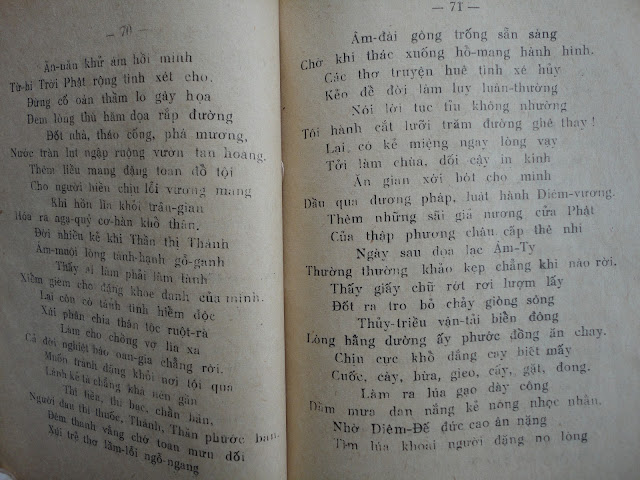 — 70 —
Ăn-năn khử ám hồi minh
Từ-bi Trời Phật rộng tình xét cho,
Đừng cố oán thầm lo gây họa
Đem lòng thú hăm dọa rấp đường
Đốt nhà, tháo cống, phá mương,
Nước tràn lụt ngập ruộng vườn tan hoang.
Thêm liều mang dặng toan đồ tội
Cho người hiền chịu lỗi vương mang
Khi hồn lìa khỏi trần-gian
Hóa ra ngạ-quỷ cơ-hàn khổ thân.
Đời nhiều kẻ khi Thần thị Thánh
Ám-muội lòng tánh-hạnh gồ-ganh
Thấy ai làm phải làm lành
Xiềm gièm cho đặng khoe danh của mình.
Lại còn có tánh tình hiểm độc
Xúi phân chia thân tộc ruột-rà
Làm cho chồng vợ lìa xa
Cả đời nghiệt báo oan-gia chẳng rời.
Muốn tránh đặng khỏi nơi tội quá
Lánh kẻ tà chẳng khá nên gần
Thi tiền, thi bạc, chẩn bần,
Người đau thí thuốc, Thánh, Thần phước ban.
Đêm thanh vắng chớ toan mưu dối
Xúi trẻ thơ lầm-lỗi ngỗ-ngang
— 71 —
Âm-đài gông trống sẵn sàng
Chờ khi thác xuống hồ-mang hành hình.
Các thơ truyện huê tình xé hủy
Kẻo để đời làm lụy luân-thường
Nói lời tục tĩu không nhường
Tội hành cắt lưỡi trăm đường ghê thay!
Lại có kẻ miệng ngay lòng vạy
Tới làm chùa, dối cậy in kinh
Ăn gian xới bớt cho mình
Dầu qua dương pháp, luật hành Diêm-vương.
Thêm những sãi giả nương cửa Phật
Của thập phương cháu cấp thê nhi
Ngày sau đọa lạc Âm-Ty
Thường thường khảo kẹp chẳng khi nào rời.
Thấy giấy chữ rớt rơi lượm lấy
Đốt ra tro bỏ chảy giòng sông
Thủy-triều vận-tải biển đông
Lòng hằng dường ấy phước đồng ăn chay.
Chịu cực khổ đắng cay biết mấy
Cuốc, cày, bừa, gieo, cấy, gặt, đong.
Làm ra lúa gạo dày công
Dầm mưa dan nắng kẻ nông nhọc nhằn.
Nhờ Diêm-Đế đức cao ân nặng
Tìm lúa khoai người đặng no lòng